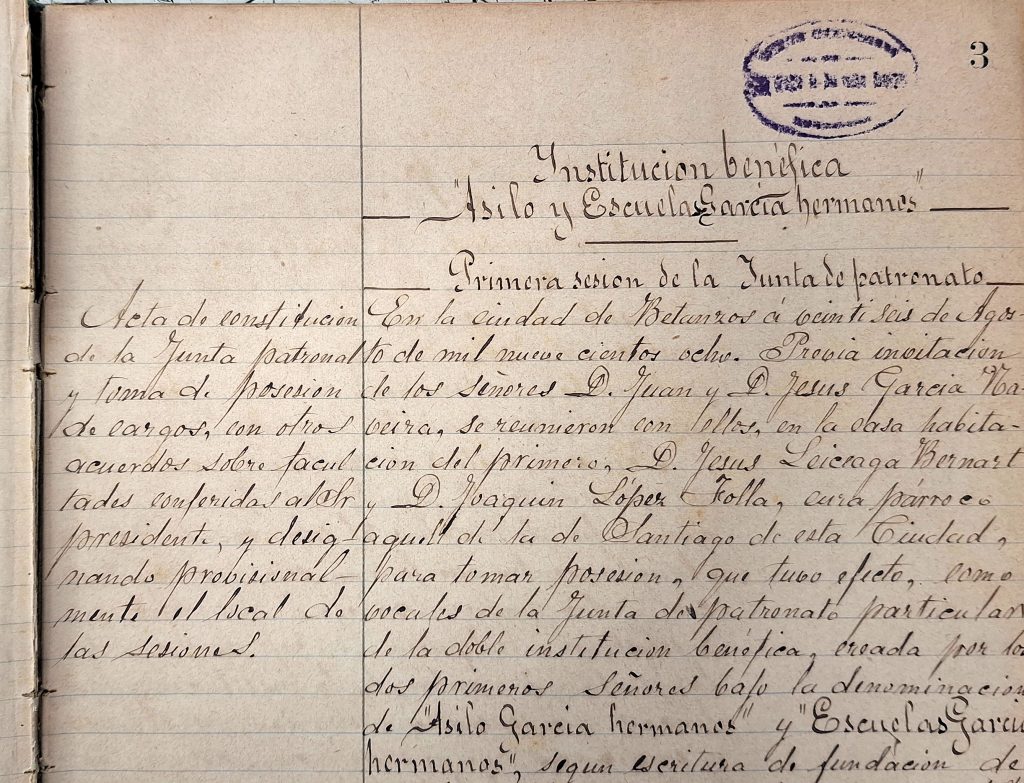 3
Institucion benéfica
"Asilo y Escuelas García hermanos"
Primera sesion de la Junta de patronato
Acta de constitucion
de la Junta patronal
y toma de posesion
de cargos, con otros
acuerdos sobre facul
tades conferidas al Sr
presidente, y desig-
nando provisional-
mente el local de
las sesiones.
En la ciudad de Betanzos á veintiseis de Agos-
to de mil nueve cientos ocho. Previa invitacion
de los señores D. Juan y D. Jesus Garcia Na-
veira, se reunieron con ellos, en la casa habita-
cion del primero, D. Jesus Leiceaga Bernart
y D. Joaquin López Folla, cura párroco
aquel de la de Santiago de esta Ciudad,
para tomar posesion, que tubo efecto, como
vocales de la Junta de patronato particular
de la doble institucion benéfica, creada por los
dos primeros señores bajo la denominacion
de "Asilo Garcia hermanos" y "Escuelas Garcia
hermanos", segun escritura de fundacion de